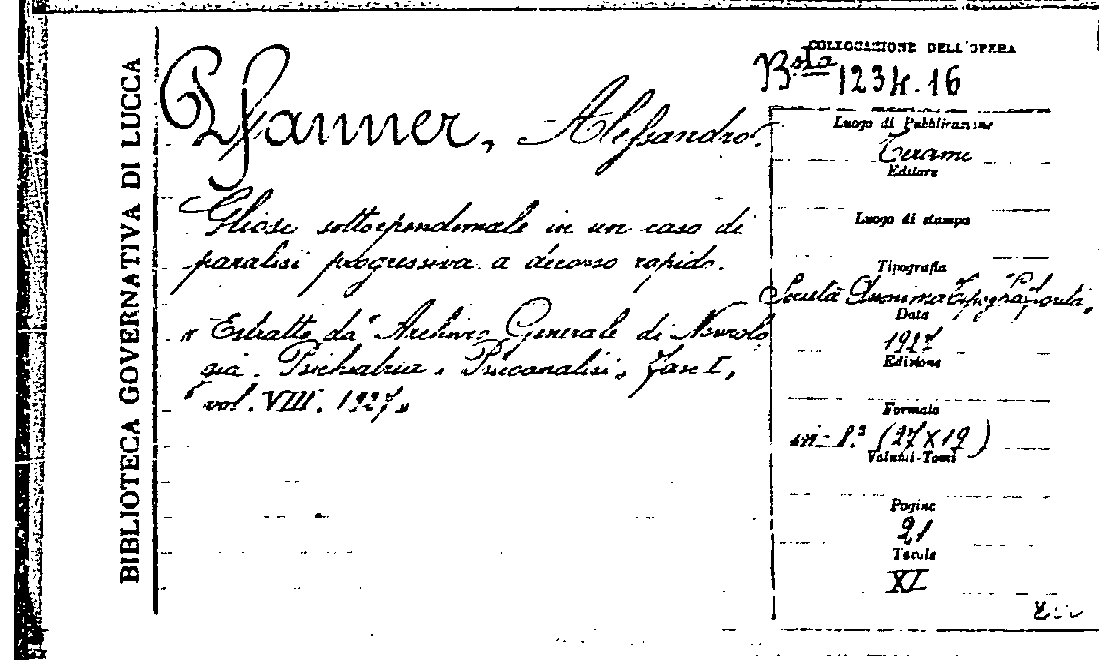 BIBLIOTECA GOVERNATIVA DI LUCCA
Pfanner, Alessandro.
Gliosi sottoependimale in un caso di
paralisi progressiva a decorso rapido.
" Estratto da" Archivio Generale di Neurolo
gia. Psichiatria e Psicoanalisi" Fasc I,
vol. VIII. 1927"
COLLOCAZIONE DELL'OPERA
Bsta 1234.16
Luogo di Pubblicazione
Teramo
Editore
Luogo di stampa
Tipografia
Società Anonima Tipografica
Data
1927
Edizione
Formato
in-8.° (27x19)
Volumi-Tomi
Pagine
21
Tavole
XI